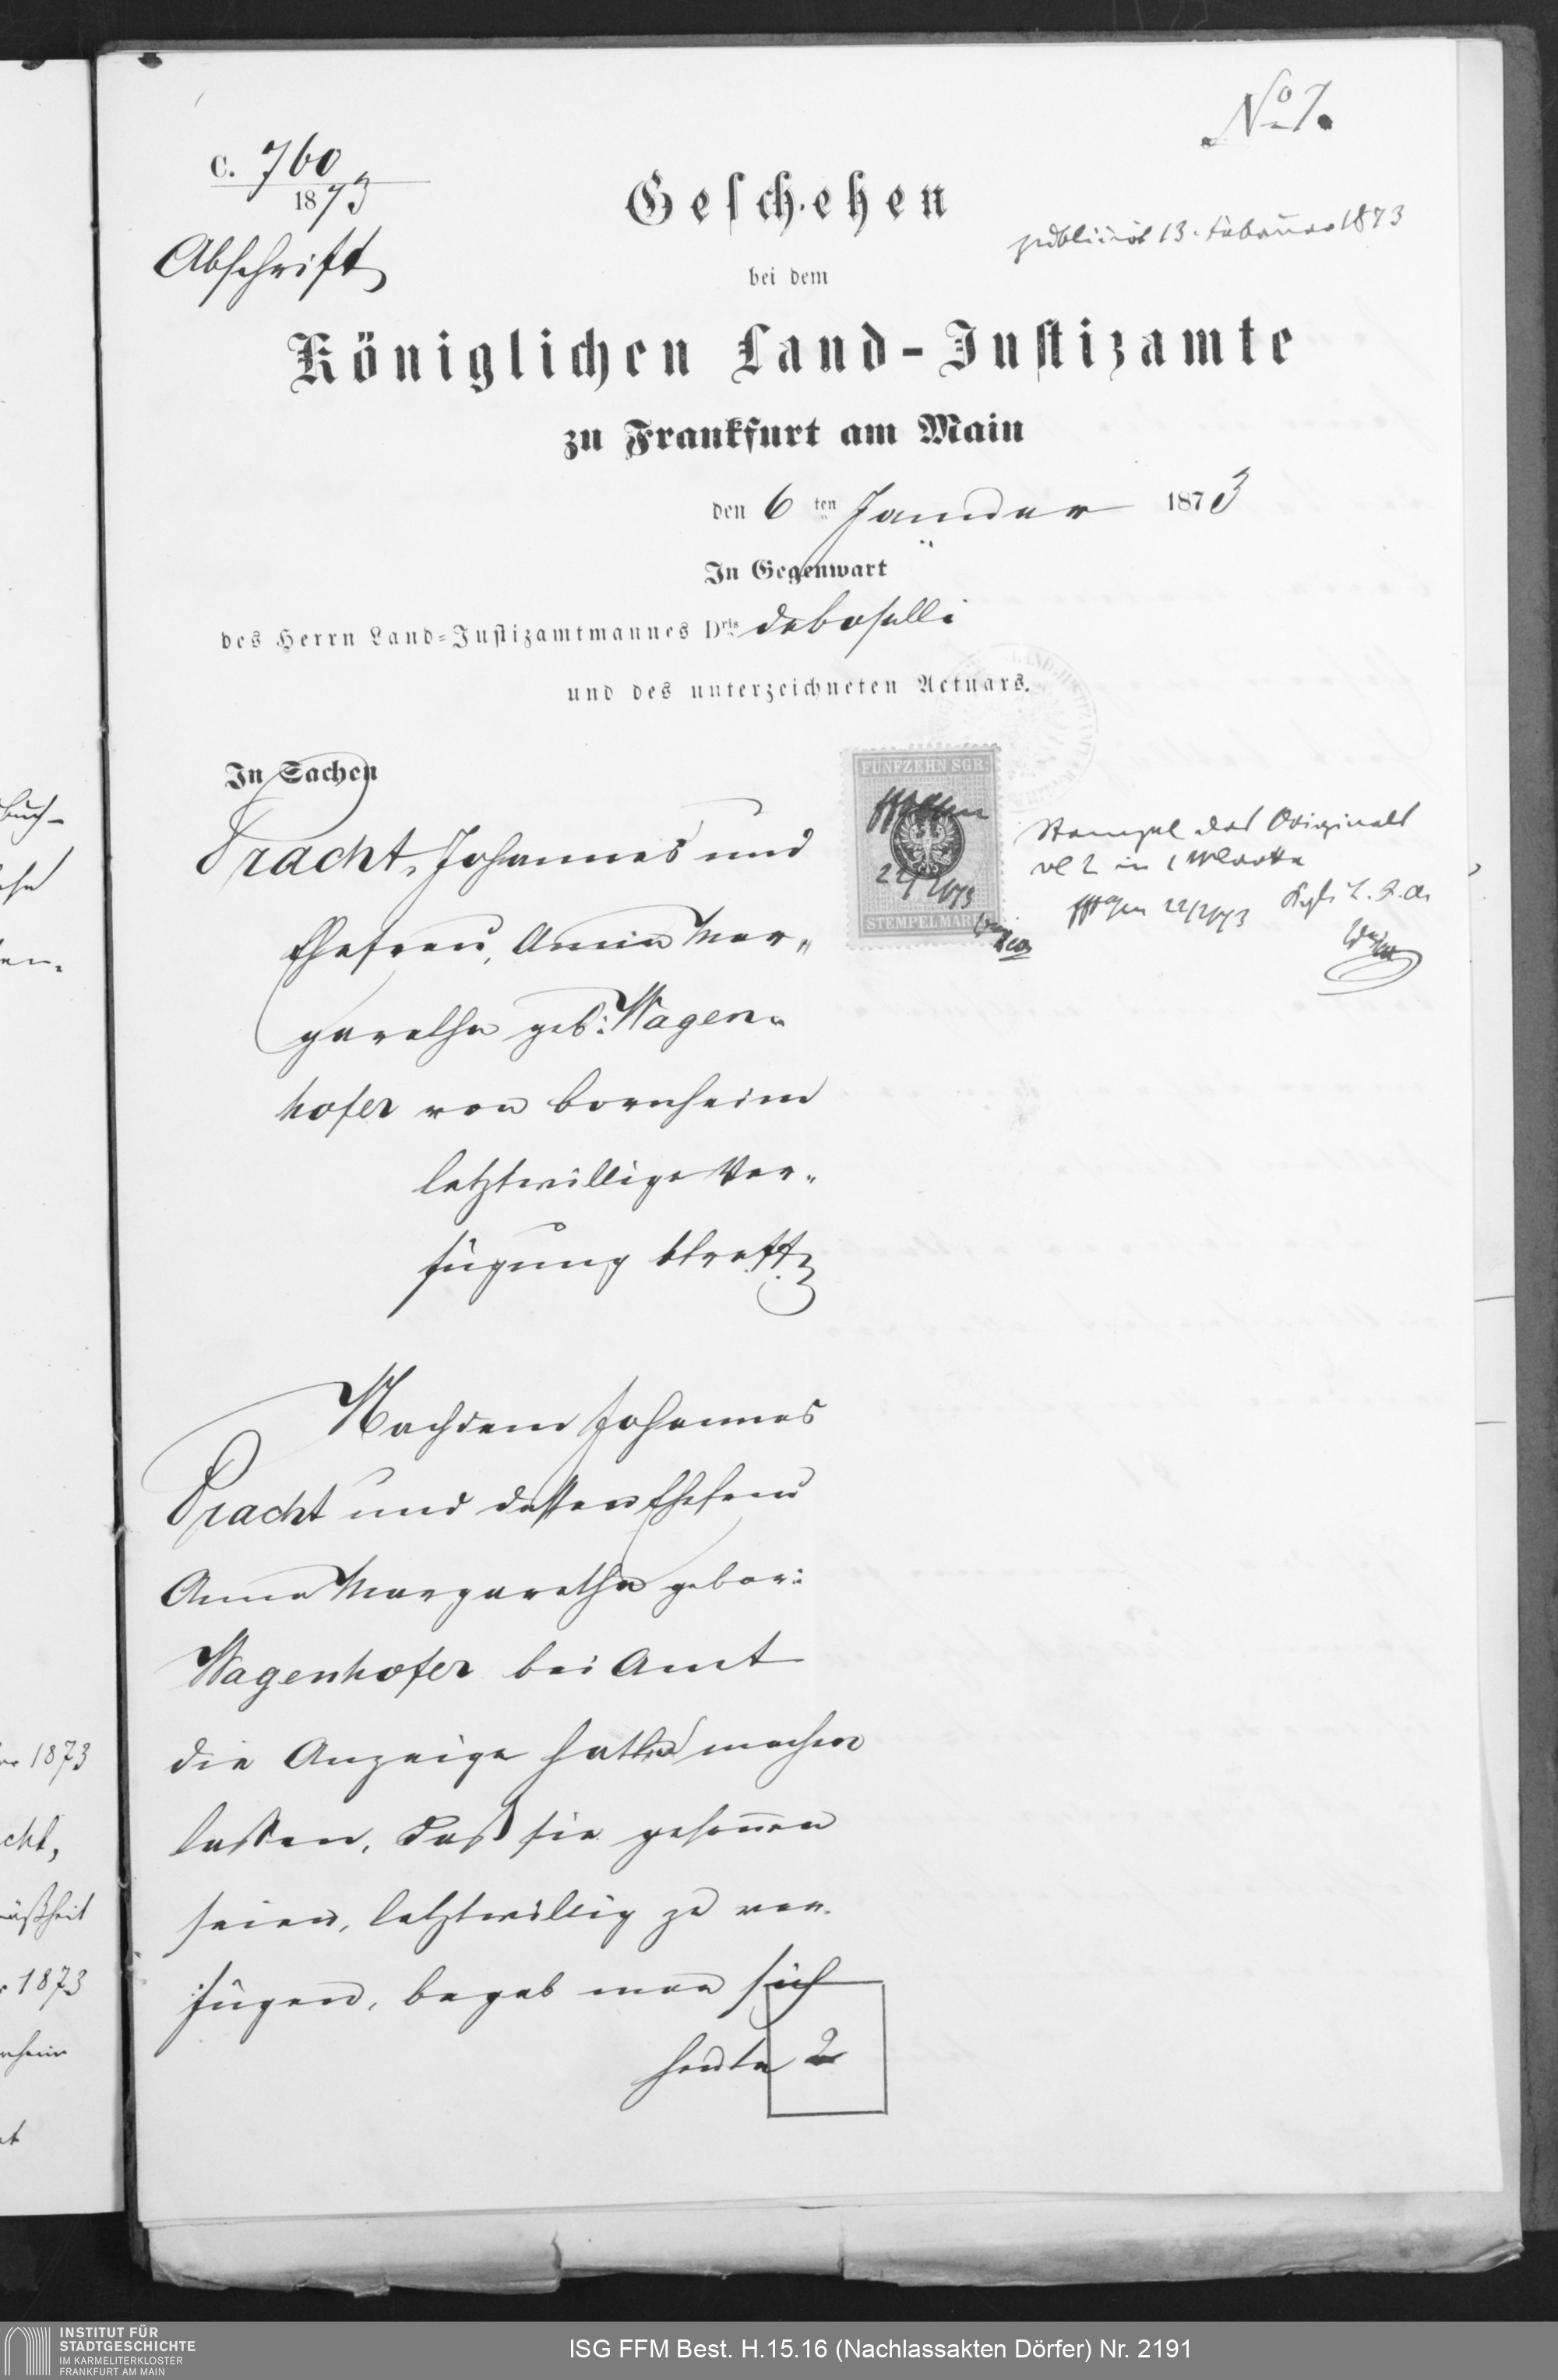 No 7.
C. 760
1873
Abschrift
Geschehen
publicirt 13. Februar 1873
bei dem
Königlichen Land-Justizamte
zu Frankfurt am Main
den 6ten Januar 1873
In Gegenwart
des Herrn Land-Justizamtmannes Dris de Boselli
und des unterzeichneten Actuars.
In Sachen
Pracht, Johannes und
Ehefrau, Anna Mar„
garetha geb: Wagen„
hofer von Bornheim
letztwillige Ver„
fügung betreff.
FÜNFZEHN SGR:
22/2/73
STEMPELMARKE
Stempel des Originals
in 1 Marke
22/2/73 Kgl. L. J. A.
Nachdem Johannes
Pracht und dessen Ehefrau
Anna Margaretha gebor:
Wagenhofer bei Amt
die Anzeige hatten machen
lassen, daß sie gesonnen
seien, letztwillig zu ver„
fügen, begab man sich
heute
2
buch-
1873
cht,
mäßheit
1873
INSTITUT FÜR
STADTGESCHICHTE
IM KARMELITERKLOSTER
FRANKFURT AM MAIN
ISG FFM Best. H.15.16 (Nachlassakten Dörfer) Nr. 2191